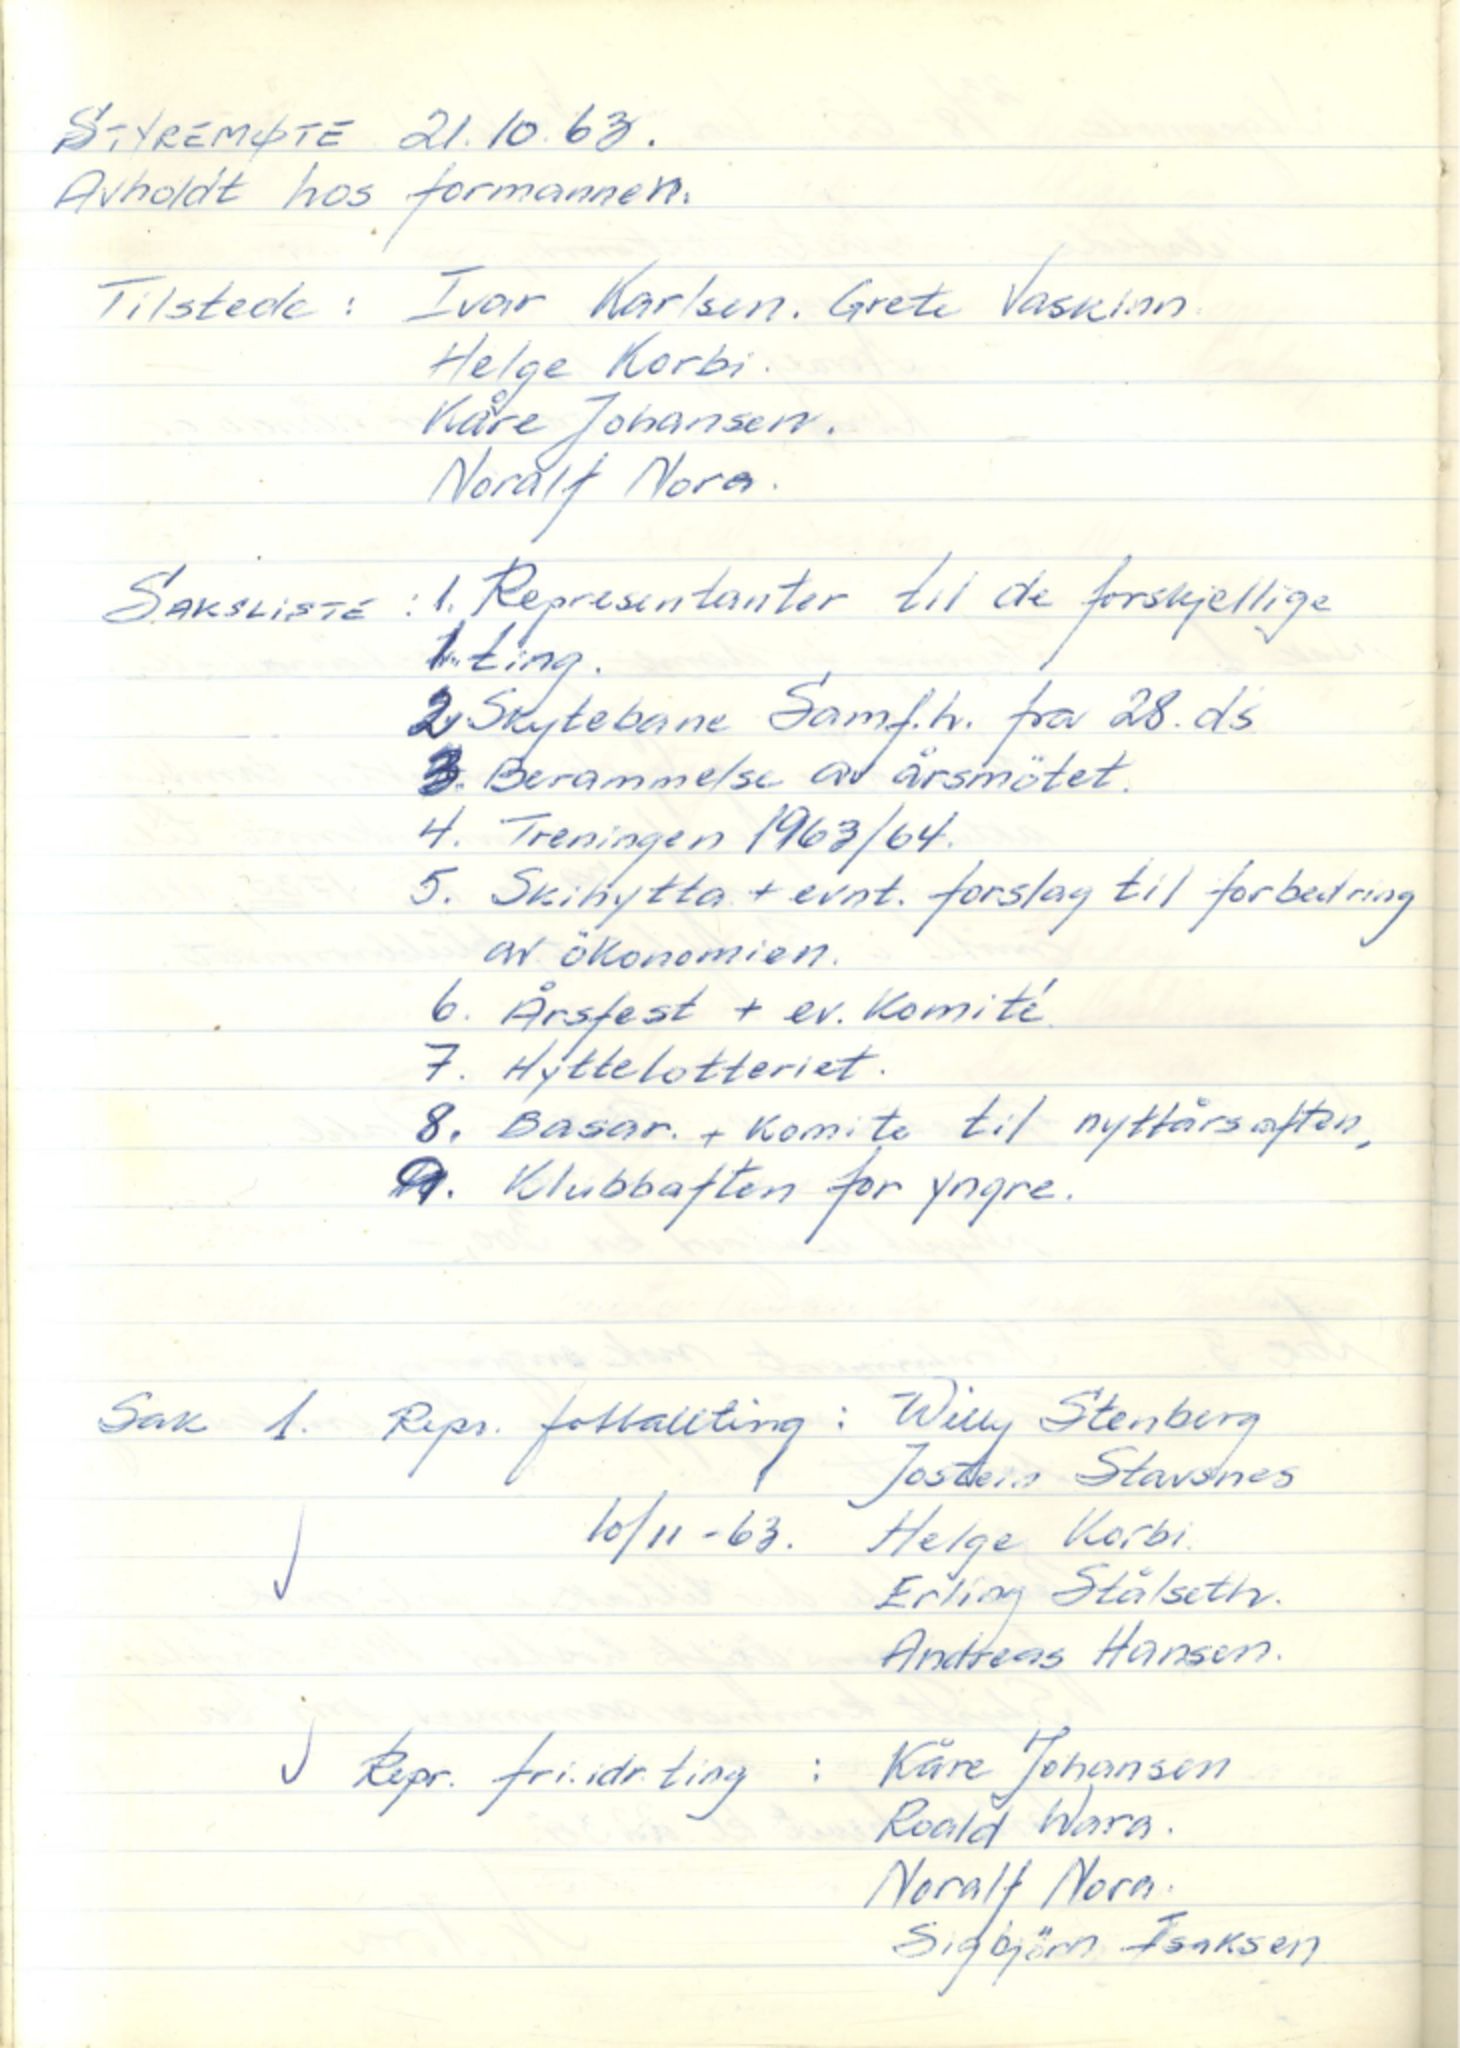 STYREMØTE 21.10.63.
Avholdt hos formannen.
Tilstede : Ivar Karlsen. Grete Vaskinn.
Helge Korbi.
Kåre Johansen.
Noralf Nora.
SAKSLISTE : 1. Representanter til de forskjellige
1. ting.
2. Skytebane Samf.h. fra 28. ds
3. Berammelse av årsmötet.
4. Treningen 1963/64.
5. Skihytta + evnt. forslag til forbedring
av ökonomien.
6. Årsfest + ev. Komité
7. Hyttelotteriet.
8. Basar. + Komite til nyttårsaften,
9. Klubbaften for yngre.
Sak 1. Repr. fotballting : Willy Stenberg
Jostein Stavsnes
10/11-63. Helge Korbi.
Erling Stålseth.
Andreas Hansen.
Repr. fri.idr. ting : Kåre Johansen
Roald Wara.
Noralf Nora.
Sigbjörn Isaksen